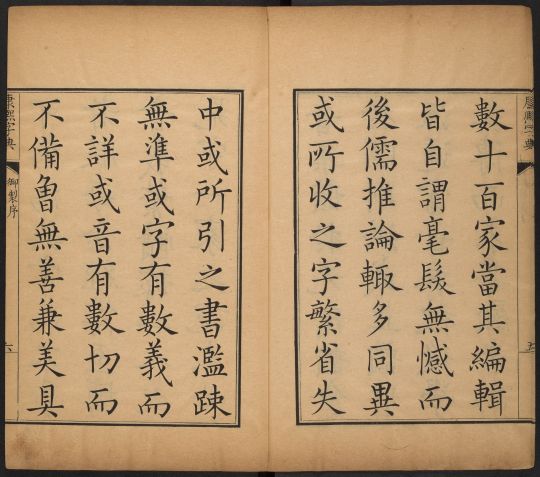 康熙字典
五
數十百家當其編輯
皆自謂毫髮無憾而
後儒推論輙多同異
或所收之字繁省失
中或所引之書濫踈
無準或字有數義而
不詳或音有數切而
不備曾無善兼美具
康熙字典
御製序
六